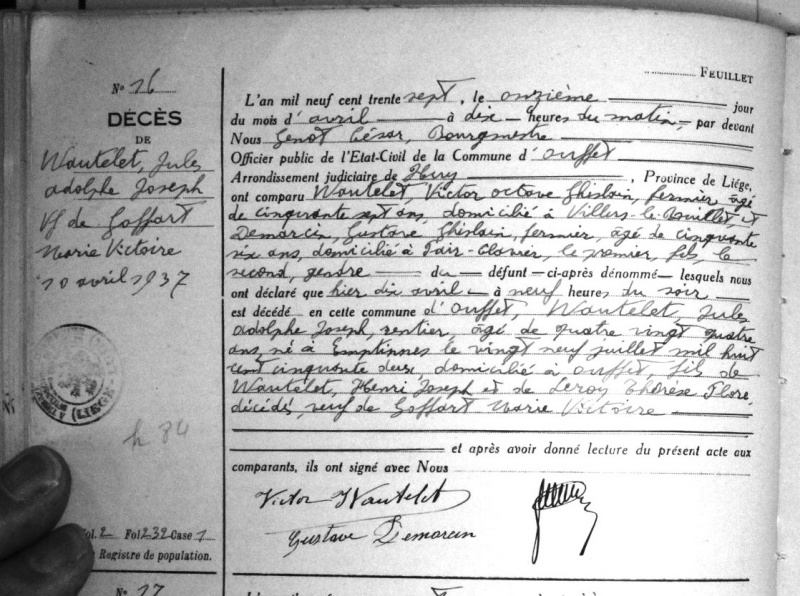 FEUILLET
N° 16
DÉCÈS
DE
Wautelet, Jules
Adolphe Joseph
Vf de Goffart
Marie Victoire
10 avril 1937
h 84
Vol. 2 Fol 232 Case 1
Registre de population.
L'an mil neuf cent trente sept, le onzième jour
du mois d'avril à dix heures du matin, par devant
Nous Genot César, Bourgmestre
Officier public de l'Etat-Civil de la Commune d'Ouffet
Arrondissement judiciaire de Huy, Province de Liége,
ont comparu Wautelet, Victor Octave Ghislain, fermier, âgé
de cinquante sept ans, domicilié à Villers-le-Bouillet, et
Demarcin, Gustave Ghislain, fermier, âgé de cinquante
six ans, domicilié à , le premier, fils, le
second, gendre du défunt ci-après dénommé lesquels nous
ont déclaré que hier dix avril à neuf heures du soir
est décédé en cette commune d'Ouffet, Wautelet, Jules
Adolphe Joseph, rentier, âgé de quatre vingt quatre
ans, né à Emptinnes le vingt neuf juillet mil huit
cent cinquante deux, domicilié à Ouffet, fils de
Wautelet, Henri Joseph et de Leroy Thérèse Flore,
décédés, veuf de Goffart Marie Victoire
et après avoir donné lecture du présent acte aux
comparants, ils ont signé avec Nous
Victor Wautelet
Gustave Demarcin
N° 17